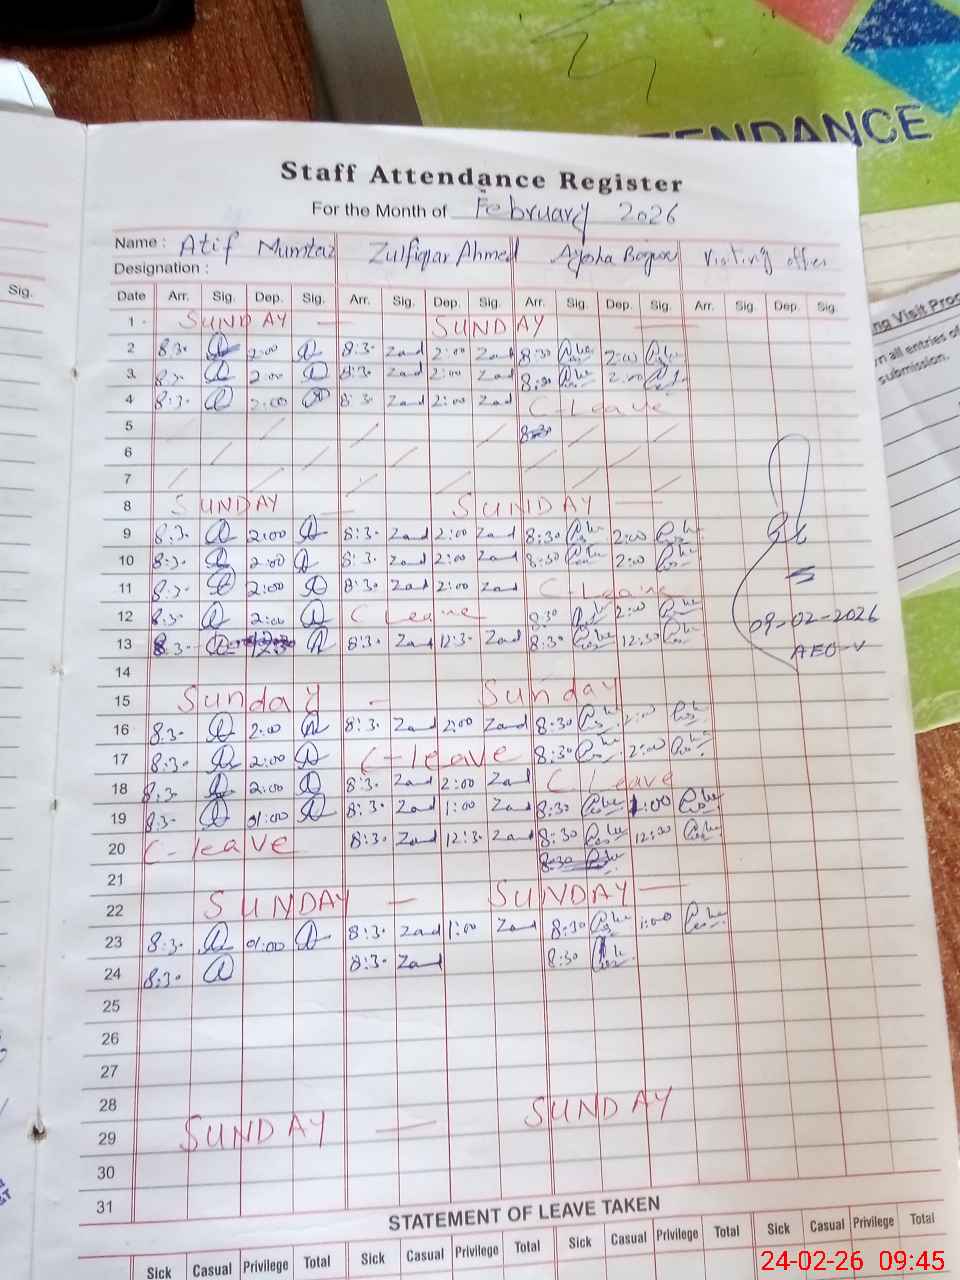 ENDANCE
Staff Attendance Register
For the Month of February 2026
Name : Atif Mumtaz Zulfiqar Ahmed Ayesha Visiting
Designation :
Sig.
Date Arr. Sig. Dep. Sig. Arr. Sig. Dep. Sig. Arr. Sig. Dep. Sig. Arr. Sig. Dep. Sig.
1 SUNDAY — SUNDAY —
2 8:30 2:00 8:30 Zad 2:00 Zad 8:30 2:00
3 8:30 2:00 8:30 Zad 2:00 Zad 8:30 2:00
4 8:30 2:00 8:30 Zad 2:00 Zad C-Leave
5 8:30
6
7
8 SUNDAY — SUNDAY —
9 8:30 2:00 8:30 Zad 2:00 Zad 8:30 2:00
10 8:30 2:00 8:30 Zad 2:00 Zad 8:30 2:00
11 8:30 2:00 8:30 Zad 2:00 Zad C-Leave
12 8:30 2:00 C Leave 8:30 2:00
13 8:30 12:30 8:30 Zad 12:30 Zad 8:30 12:30
09-02-2026
AEO-V
14
15 Sunday - Sunday
16 8:30 2:00 8:30 Zad 2:00 Zad 8:30 2:00
17 8:30 2:00 C-leave 8:30 2:00
18 8:30 2:00 8:30 Zad 2:00 Zad C Leave
19 8:30 01:00 8:30 Zad 1:00 Zad 8:30 1:00
20 C-leave 8:30 Zad 12:30 Zad 8:30 12:30
8:30
21
22 SUNDAY - SUNDAY —
23 8:30 01:00 8:30 Zad 1:00 Zad 8:30 1:00
24 8:30 8:30 Zad 8:30
25
26
27
28
29 SUNDAY — SUNDAY
30
31
STATEMENT OF LEAVE TAKEN
Sick Casual Privilege Total Sick Casual Privilege Total Sick Casual Privilege Total Sick Casual Privilege Total
ng Visit Pro
n all entries of
submission.
24-02-26 09:45